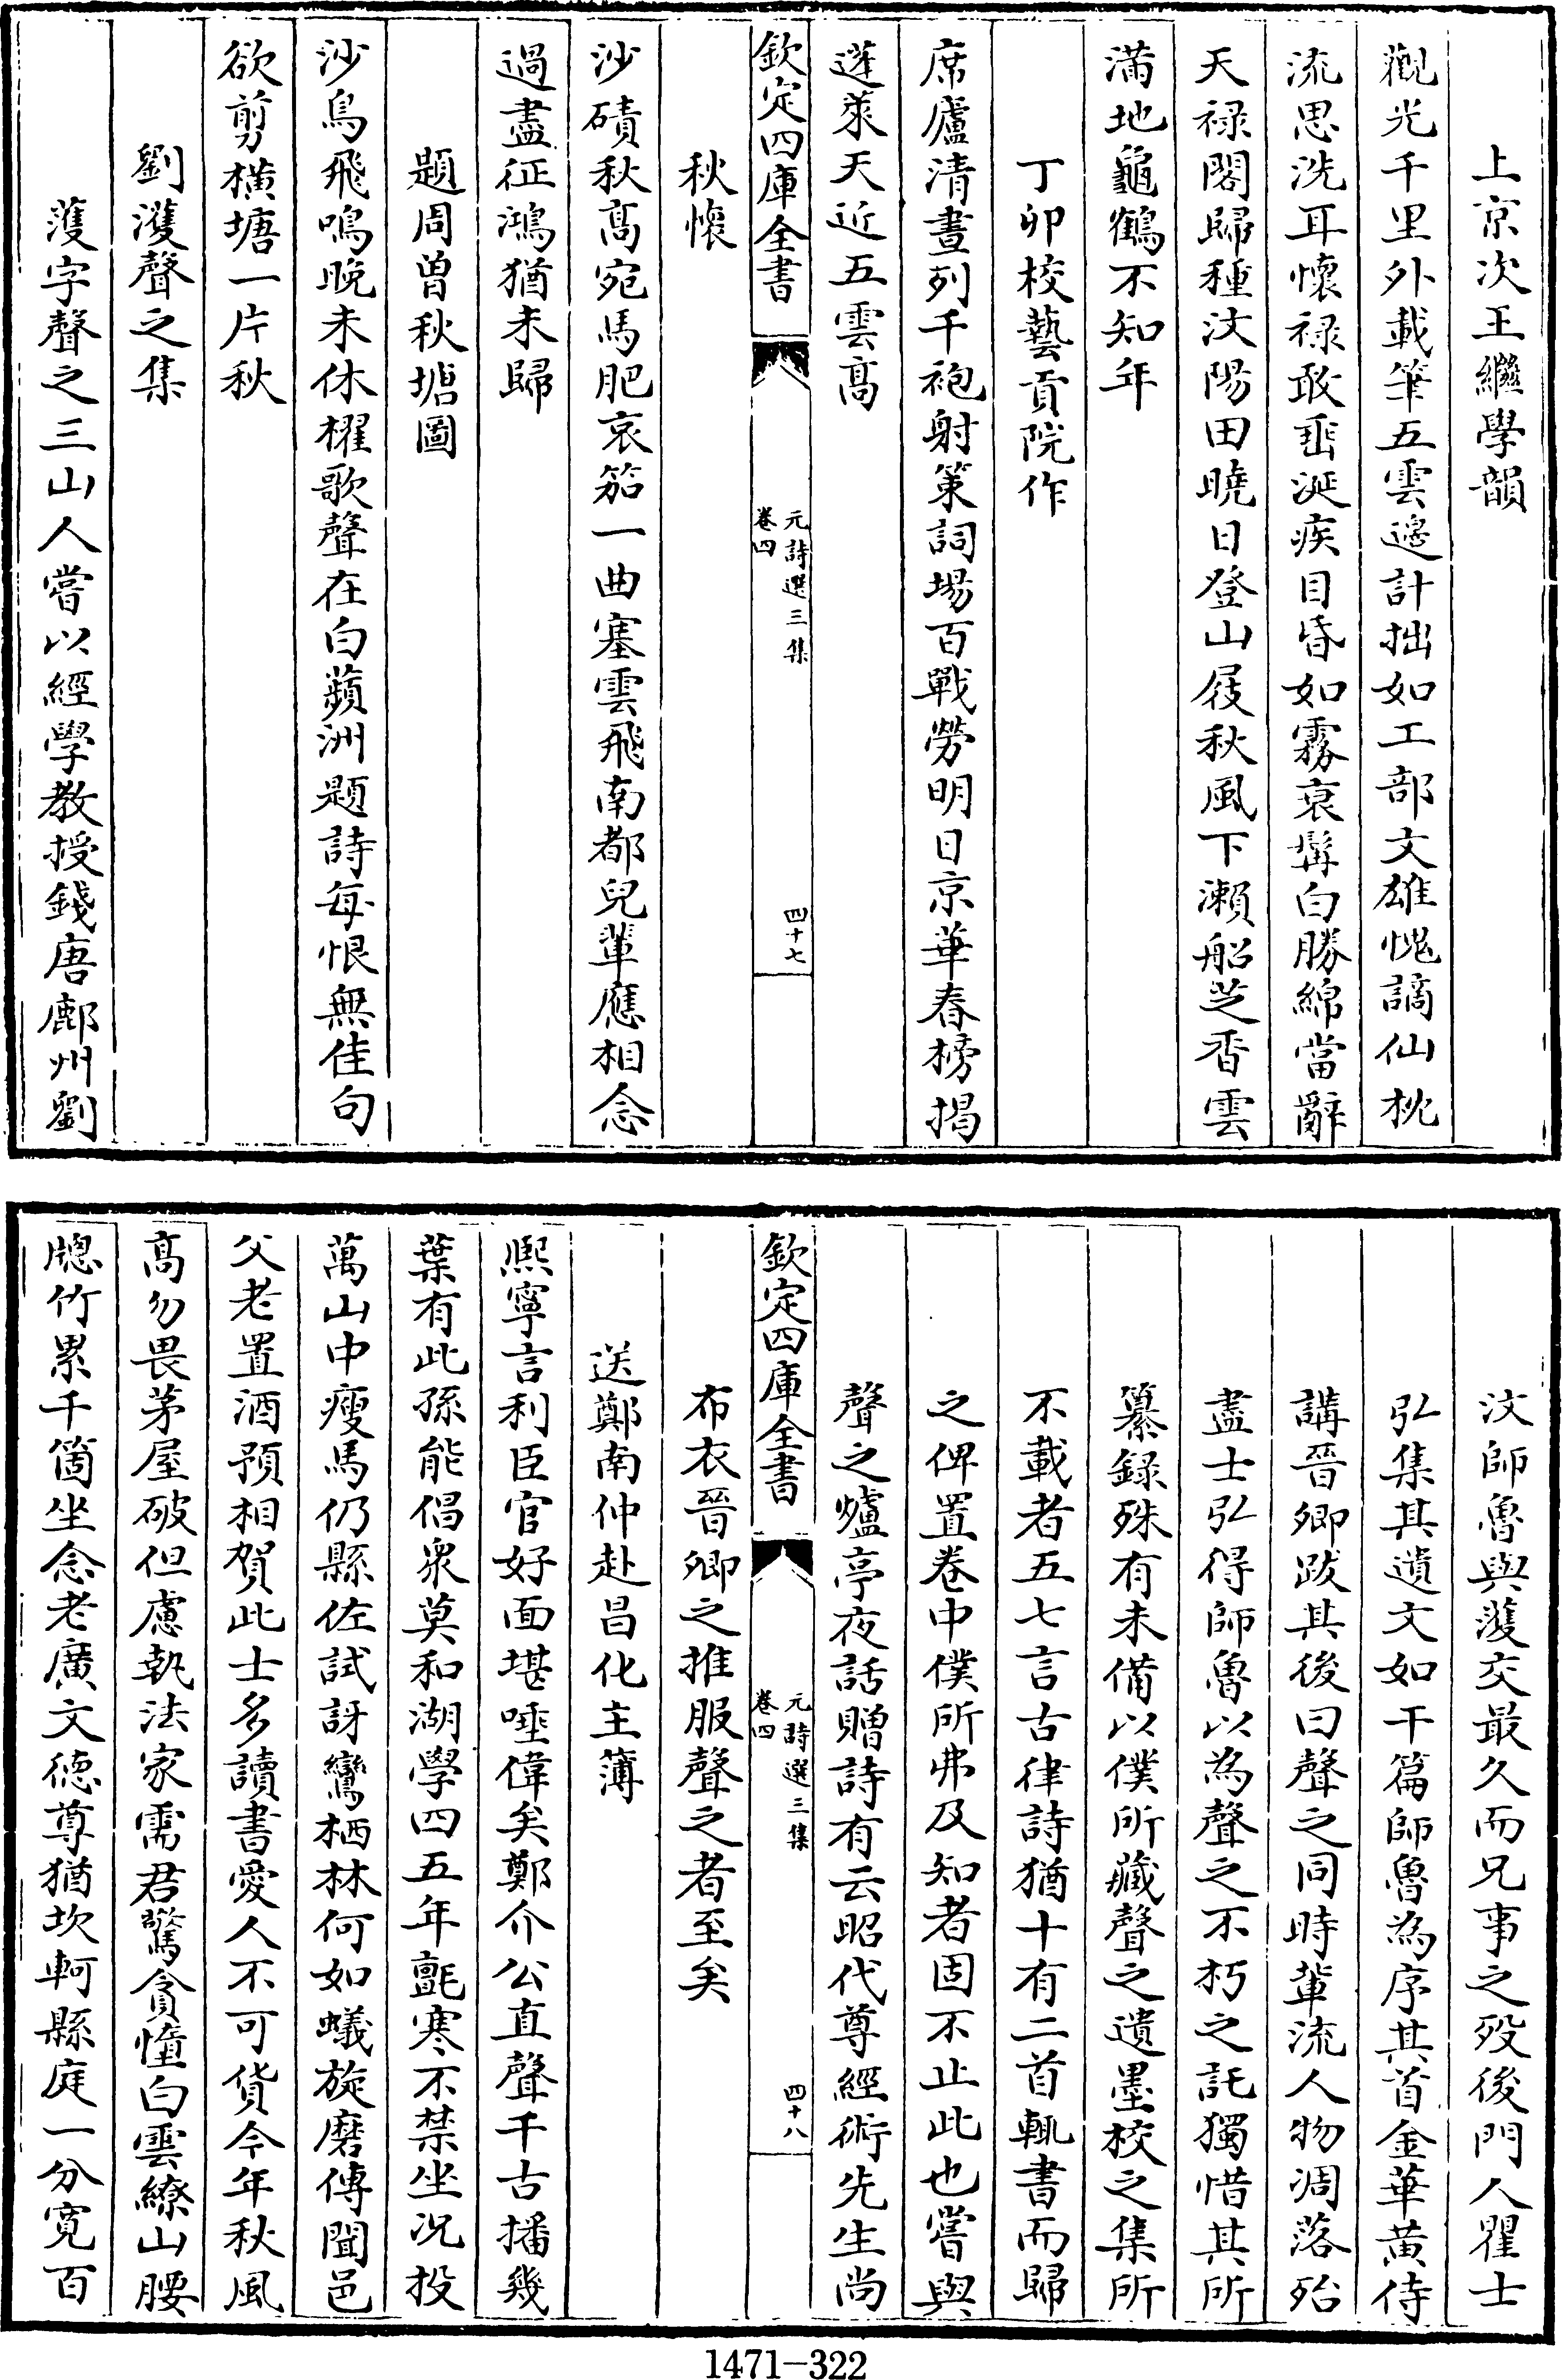 上京次王繼學韻
觀光千里外載筆五雲邊計拙如工部文雄愧謫仙枕
流思洗耳懷祿敢垂涎疾目昏如霧衰髩白勝綿當辭
天祿閣歸種汶陽田曉日登山屐秋風下瀨船芝香雲
滿地龜鶴不知年
丁卯校藝貢院作
席廬清晝列千袍射策詞場百戰勞明日京華春榜揭
蓬萊天近五雲高
欽定四庫全書
元詩選三集
卷四
四十七
秋懷
沙磧秋高宛馬肥哀笳一曲塞雲飛南都兒輩應相念
過盡征鴻猶未歸
題周曾秋塘圖
沙鳥飛鳴晚未休櫂歌聲在白蘋洲題詩每恨無佳句
欲剪橫塘一片秋
劉濩聲之集
濩字聲之三山人嘗以經學教授錢唐鄜州劉
汶師魯與濩交最久而兄事之歿後門人瞿士
弘集其遺文如干篇師魯為序其首金華黃侍
講晉卿跋其後曰聲之同時輩流人物凋落殆
盡士弘得師魯以為聲之不朽之託獨惜其所
纂錄殊有未備以僕所藏聲之遺墨校之集所
不載者五七言古律詩猶十有二首輒書而歸
之俾置卷中僕所弗及知者固不止此也嘗與
聲之爐亭夜話贈詩有云昭代尊經術先生尚
欽定四庫全書
元詩選三集
卷四
四十八
布衣晉卿之推服聲之者至矣
送鄭南仲赴昌化主簿
熈寧言利臣官好面堪唾偉矣鄭介公直聲千古播幾
葉有此孫能倡衆莫和湖學四五年氈寒不禁坐况投
萬山中瘦馬仍縣佐試訝鸞栖林何如蟻旋磨傳聞邑
父老置酒預相賀此士多讀書愛人不可貨今年秋風
高勿畏茅屋破但慮執法家需君驚貪懦白雲繚山腰
牕竹累千箇坐念老廣文德尊猶坎軻縣庭一分寬百
1471-322